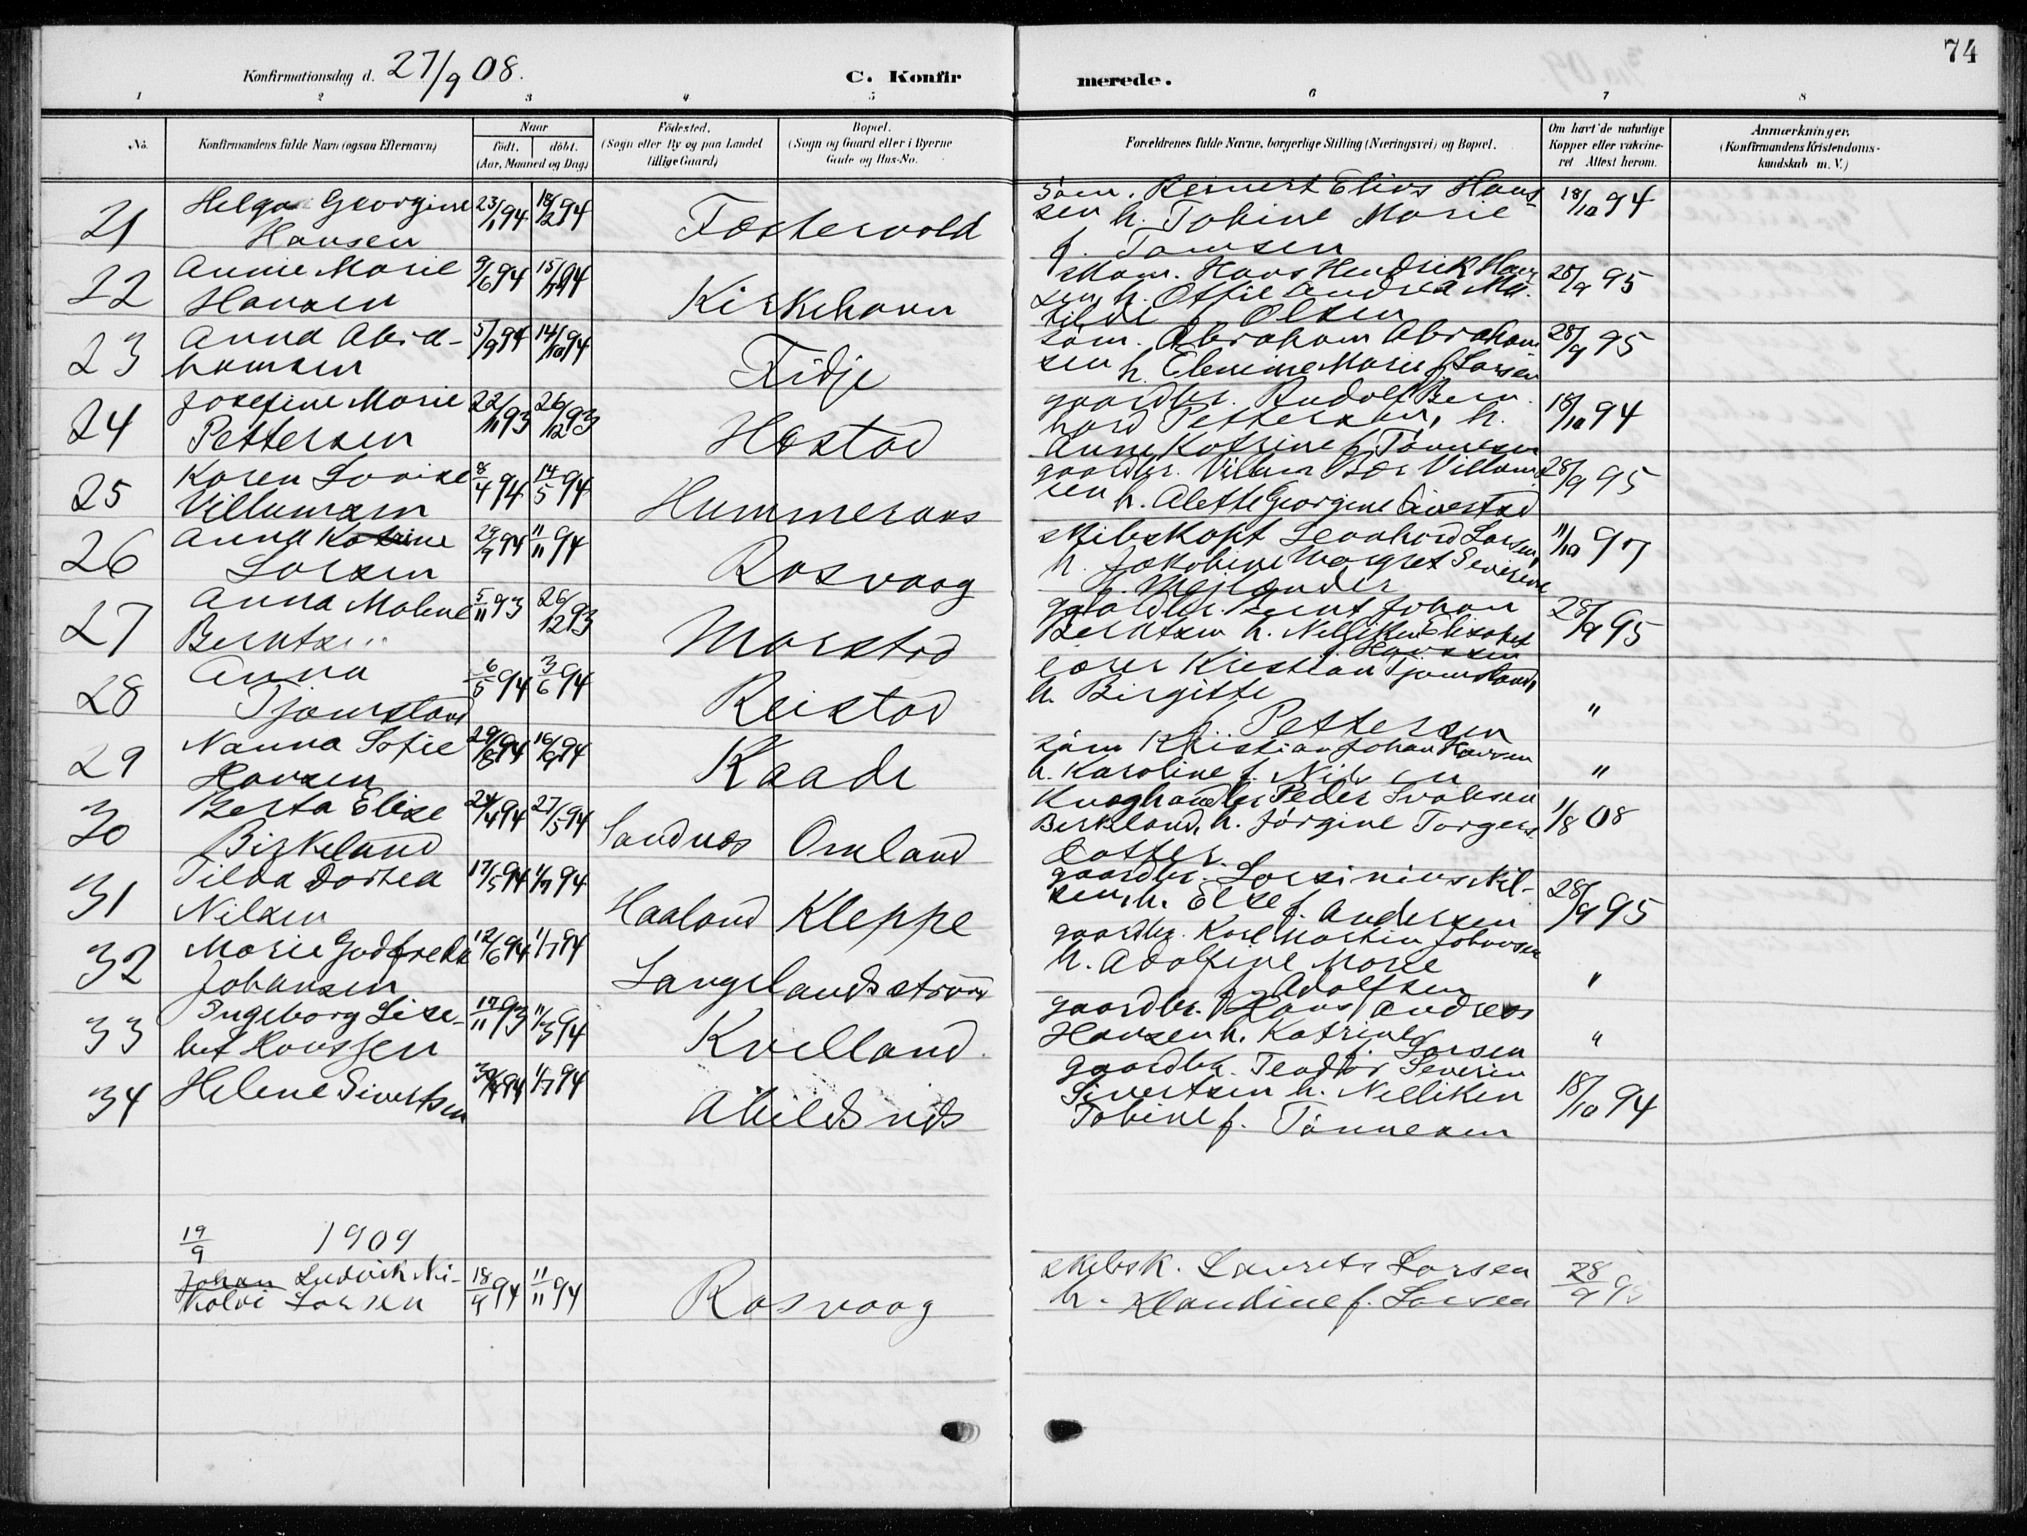 74
Konfirmationsdag d. 27/9 08.
C. Konfirmerede.
1 2 3 4 5 6 7 8
No.
Konfirmandens fulde Navn (ogsaa Efternavn)
Naar
født. døbt.
(Aar, Maaned og Dag)
Fødested.
(Sogn eller By og paa Landet
tillige Gaard)
Bopæl.
(Sogn og Gaard eller i Byerne
Gade og Hus-No.
Forældrenes fulde Navne, borgerlige Stilling (Næringsvei) og Bopæl.
Om havt de naturlige
Kopper eller vakcine-
ret Attest herom.
Anmærkninger.
(Konfirmandens Kristendoms-
kundskab m. V.)
21 Helga Georgine 23/1 94 18/2 94 Fæstervold
Hansen
Søm. Reinert Elias Han- 18/10 94
sen h. Tobine Marie
f. Tomsen
22 Annie Marie 9/6 94 15/7 94 Kirkehavn
Hansen
Møm. Hans Hendrik Han 28/9 95
sen, h. Ottie Andrea Ma-
tilde Olsen
23 Anna Abra- 5/9 94 14/10 94 Fidje
hamsen
søm. Abraham Abraham 28/9 95
sen h. Elenine Marie f. Larsen
24 Josefine Marie 22/11 93 26/12 93 Hestad
Pettersen
gaardbr. Rudolf Bern- 18/10 94
hard Pettersen, h.
Anne Katrine f. Tønnesen
25 Karen Lovise 8/4 94 14/5 94 Hummeraas
Villumsen
gaardbr. Villum Villum 28/9 95
sen h. Alette Georgine Sivestad
26 Anna Katrine 29/9 94 11/11 94 Rasvaag
Larsen
skibskapt Leonhard Larsen, 11/10 97
h. Jakobine Margret Severine
f. Mejlænder
27 Anna Malene 5/11 93 26/12 93 Marstad
Berntsen
gaardbr. Bernt Johan 28/9 95
Berntsen h. Nelliken Elisabet
Hanssen
28 Anna 6/5 94 3/6 94 Reistad
Tjomsland
lærer Kristian Tjomsland,
h. Birgitte "
f. Pettersen
29 Nanna Sofie 29/8 94 16/9 94 Kaade
Hansen
søm Kristian Johan Hansen
h. Karoline f. Nilsen "
30 Berta Elise 24/4 94 27/5 94 Sandnes Omland
Birkeland
Peder
Birkland, h. Jørgine Torgers 1/8 08
datter.
31 Tilda Dortea 17/5 94 1/7 94 Haaland Kleppe
Nilsen
gaardbr. Nil- 28/9 95
sen, h. Else f. Andersen
32 Marie Godfreda 12/6 94 1/7 94 Langelandsstrønd
Johansen
gaardbr. Karl Martin Johansen
h. Adolfine Marie "
f. Adolfsen
33 Ingeborg Lisa- 17/11 93 11/3 94 Kvelland
bet Hanssen
gaardbr. Hans Andreas
Hansen h. Katrine "
Larsen
34 Helene Sivertsen 94 1/7 94 Abildsnes
gaardbr. Teodor Severin
Sivertsen h. Nelliken 18/10 94
Tobine f. Tønnesen
19/9 1909
Johan Ludvik Ni- 18/9 94 11/11 94 Rasvaag
kolai Larsen
skibsk. Laurets Larsen 28/9
h. Klaudine f. Larsen